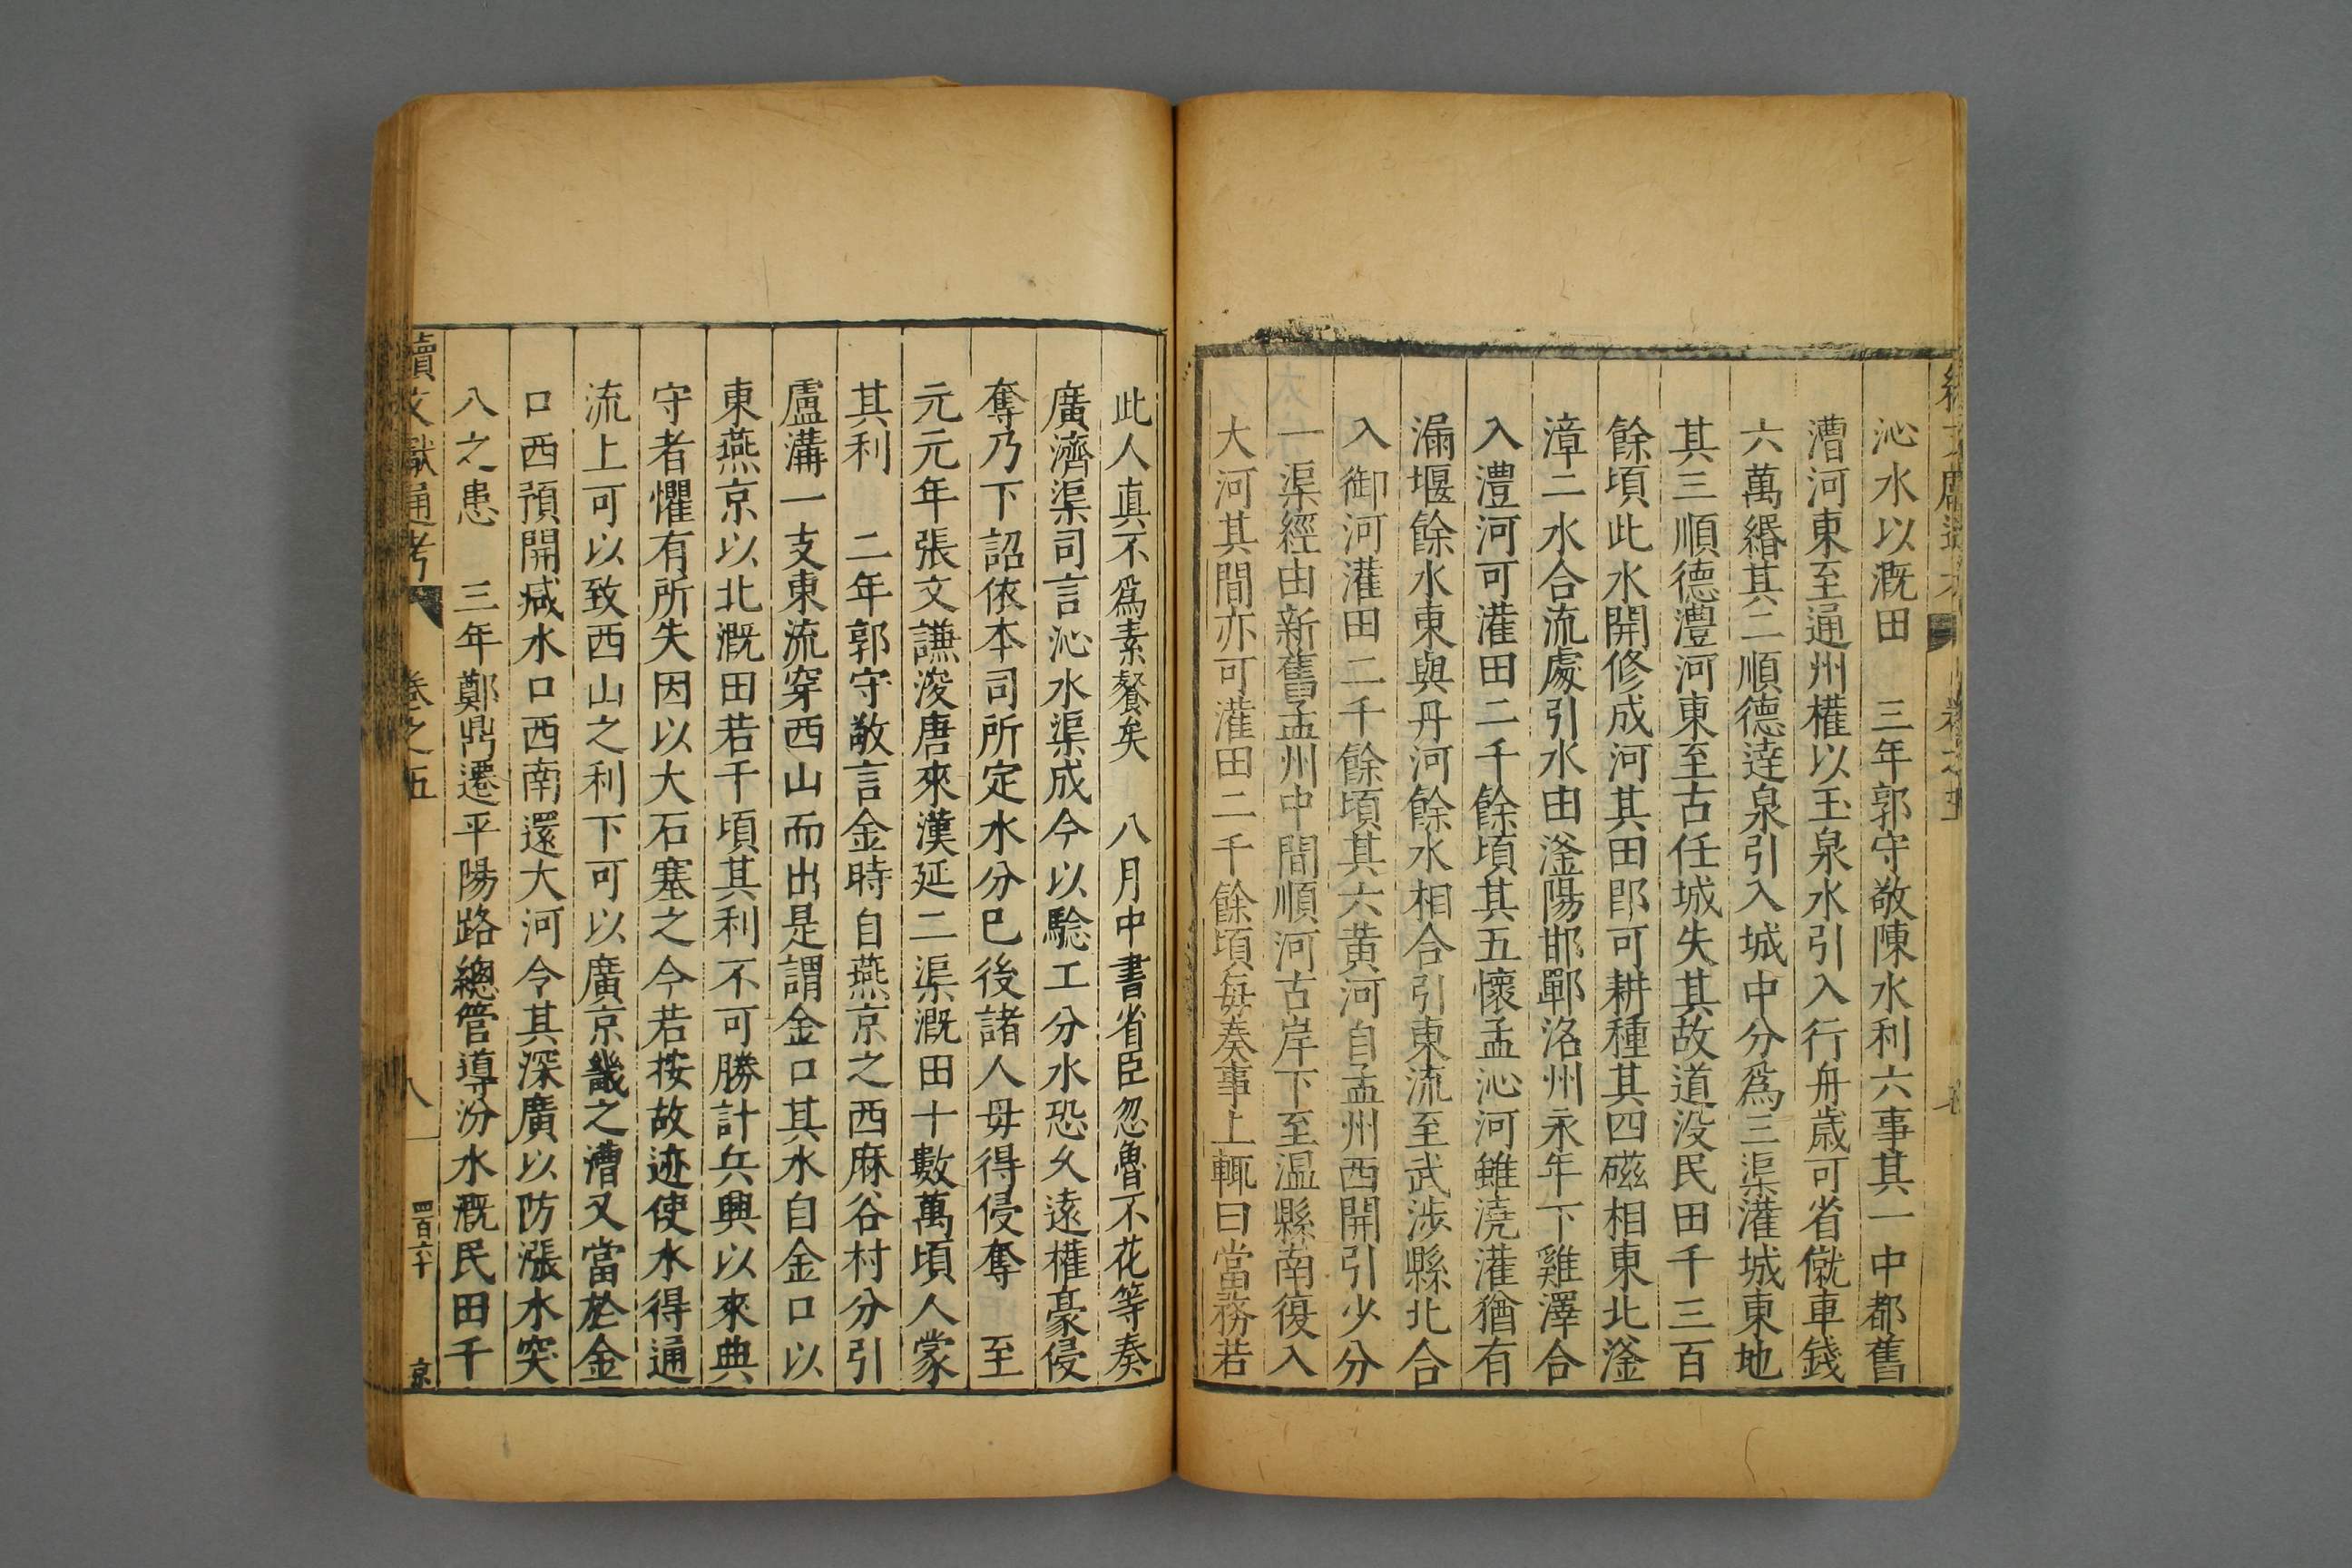 沁水以溉田　三年郭守敬陳水利六事其一中都舊
漕河東至通州權以玉泉水引入行舟歲可省僦車錢
六萬緡其二順德達泉引入城中分爲三渠灌城東地
其三順德灃河東至古任城失其故道没民田千三百
餘頃此水開修成河其田即可耕種其四磁相東北滏
漳二水合流處引水由滏陽邯鄲洺州永年下雞澤合
入灃河可灌田二千餘頃其五懷孟沁河雖澆灌猶有
漏堰餘水東與丹河餘水相合引東流至武涉縣北合
入御河灌田二千餘頃其六黄河自孟州西開引少分
一渠經由新舊孟州中間順河古岸下至温縣南復入
大河其間亦可灌田二千餘頃每奏事上輒曰當務若
此人真不爲素餐矣　八月中書省臣忽魯不花等奏
廣濟渠司言沁水渠成今以驗工分水恐久遠權豪侵
奪乃下詔依本司所定水分已後諸人毋得侵奪　至
元元年張文謙浚唐來漢延二渠溉田十數萬頃人蒙
其利　二年郭守敬言金時自燕京之西麻谷村分引
盧溝一支東流穿西山而出是謂金口其水自金口以
東燕京以北溉田若干頃其利不可勝計兵興以來典
守者懼有所失因以大石塞之今若按故迹使水得通
流上可以致西山之利下可以廣京畿之漕又當於金
口西預開减水口西南還大河令其深廣以防漲水突
八之患　三年鄭鼎遷平陽路總管導汾水溉民田千
續文獻通考　卷之五　八　四百六十　京